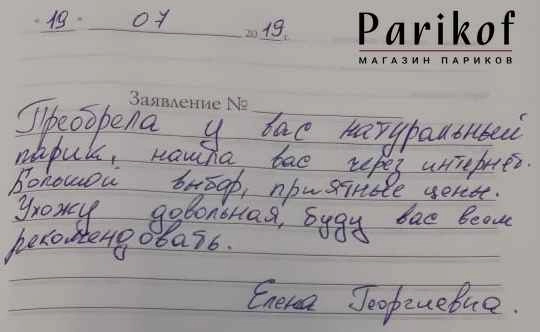 "19" 07 2019 г.
Parikof
МАГАЗИН ПАРИКОВ
Заявление №
Преобрела у вас натуральный
парик, нашла вас через интернет.
Большой выбор, приятные цены.
Ухожу довольная, буду вас всем
рекомендовать.
Елена Георгиевна.